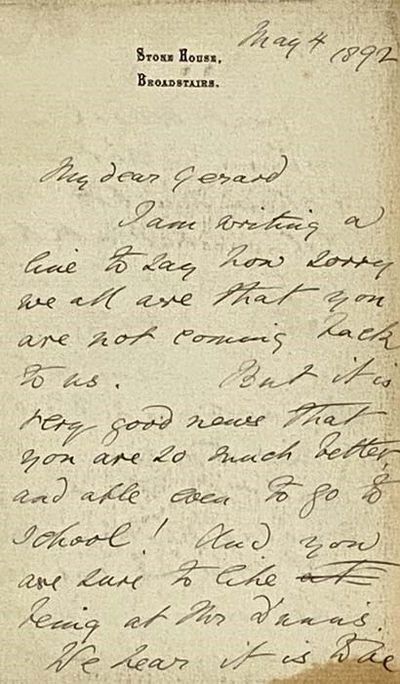 May 4 1892
STONE HOUSE,
BROADSTAIRS.
My dear Gerard
I am writing a
line to say how sorry
we all are that you
are not coming back
to us. But it is
very good news that
you are so much better,
and able even to go to
school! And you
are sure to like at
being at Mr
We hear it is to be